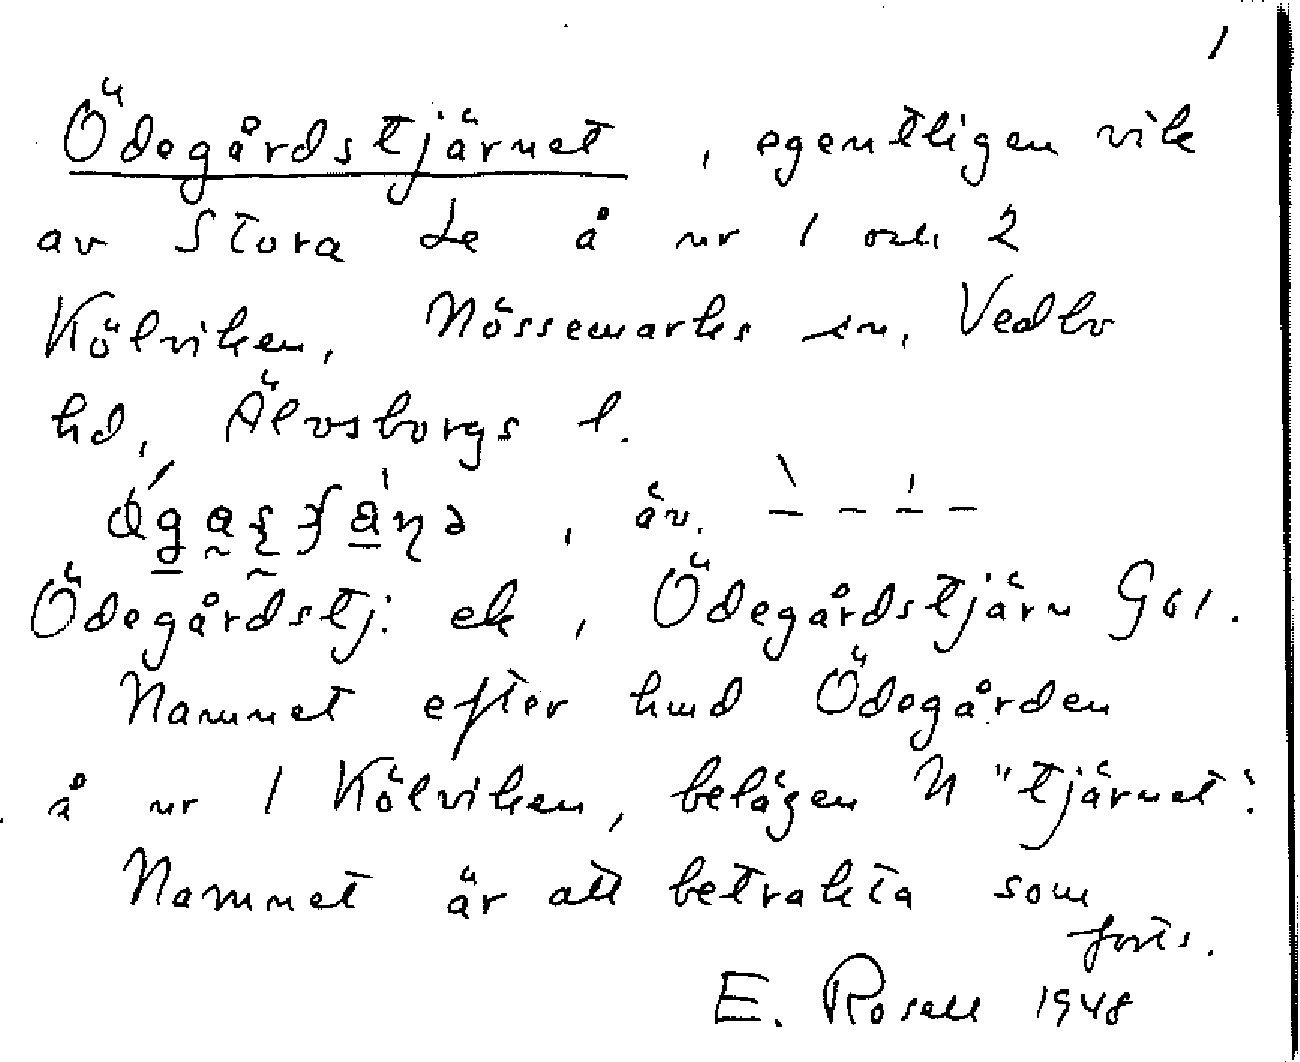 1
Ödegårdstjärnet, egentligen vik
av Stora Le å nr 1 och 2
Kölviken, Nössemarks sn, Vedbo
hd, Älvsborgs l.
, äv.
Ödegårdstj: ek, Ödegårdstjärn Gs1.
Namnet efter hmd Ödegården
å nr 1 Kölviken, belägen N "tjärnet".
Namnet är att betrakta som
forts.
E. Rosell 1948